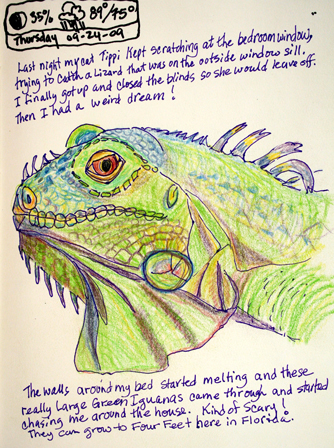 35% 89°/75°
Thursday 09-24-09
Last night my cat Tippi Kept scratching at the bedroom window,
trying to catch a Lizard that was on the outside window sill.
I finally got up and closed the blinds so she would leave off.
Then I had a weird dream!
The walls around my bed started melting and these
really Large Green Iguanas came through and started
chasing me around the house. Kind of Scary!
They can grow to Four Feet here in Florida.